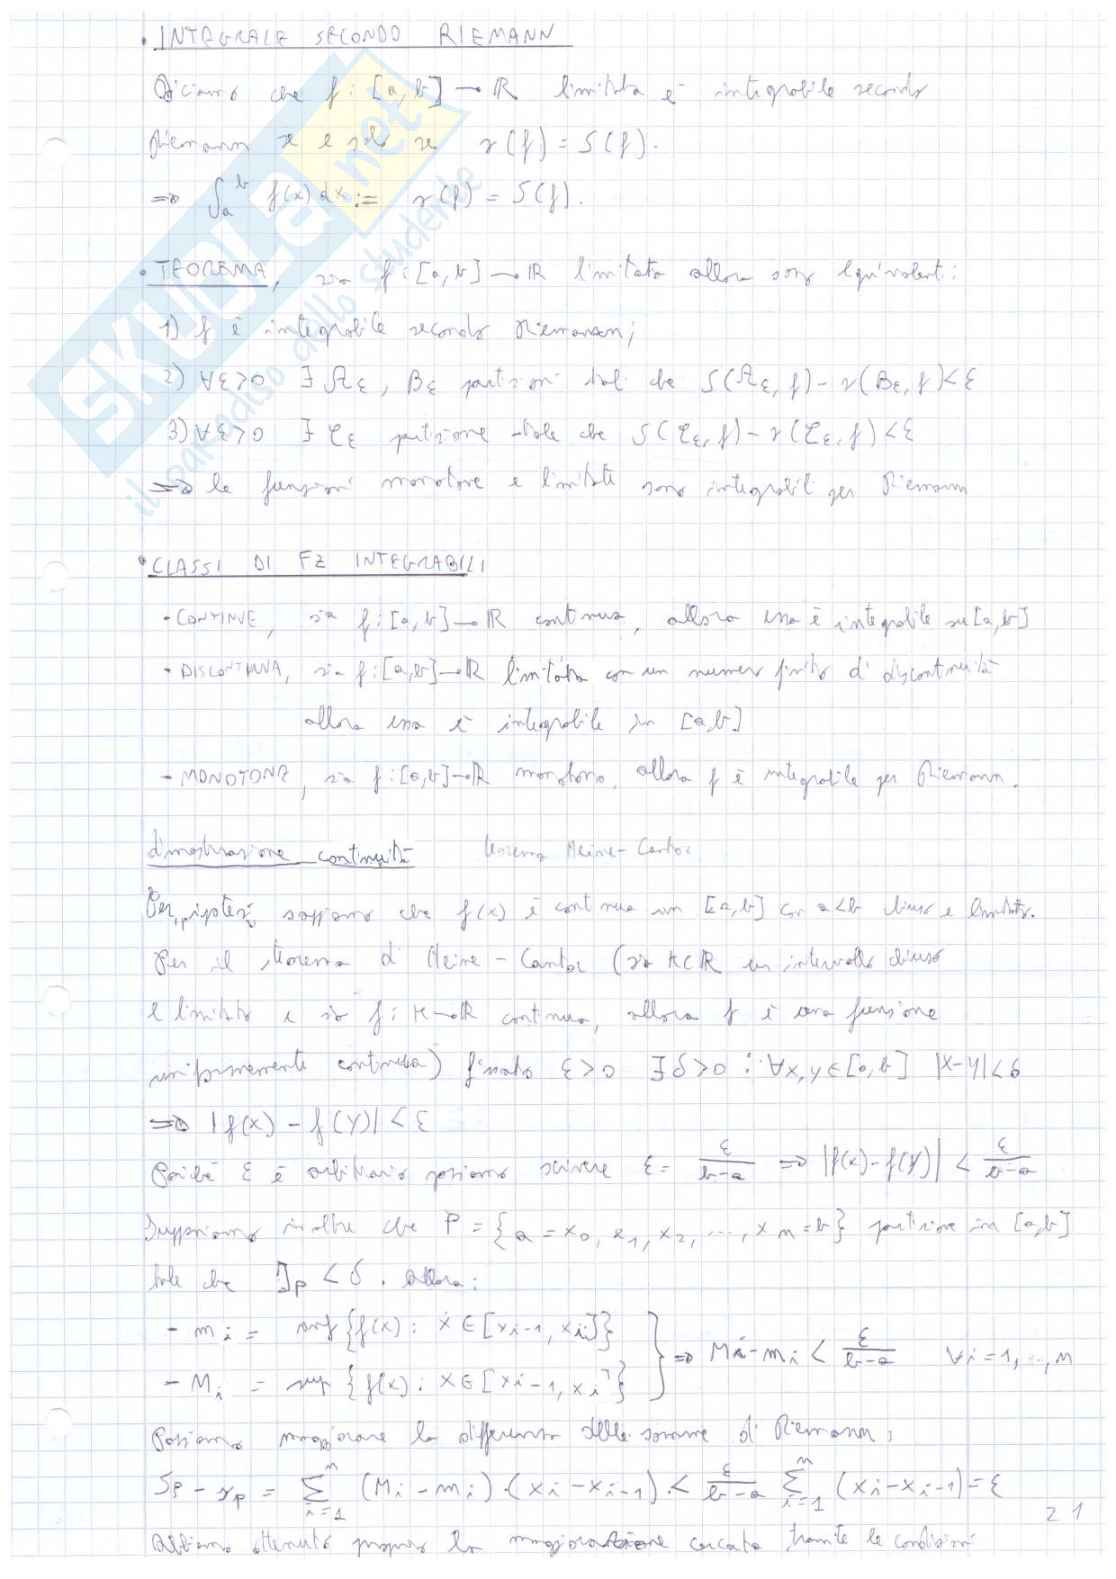 • INTEGRALE SECONDO RIEMANN
Diciamo che f: [a, b] → ℝ limitata è integrabile secondo
Riemann se e solo se s(f) = S(f).
⇒ ∫ₐᵇ f(x) dx := s(f) = S(f).
• TEOREMA, sia f: [a, b] → ℝ limitata allora sono equivalenti:
1) f è integrabile secondo Riemann;
2) ∀ε>0 ∃ 𝒜ε, ℬε partizioni tali che S(𝒜ε, f) - s(ℬε, f) < ε
3) ∀ε>0 ∃ 𝒞ε partizione tale che S(𝒞ε, f) - s(𝒞ε, f) < ε
⇒ le funzioni monotone e limitate sono integrabili per Riemann
• CLASSI DI FZ INTEGRABILI
- CONTINUE, sia f: [a, b] → ℝ continua, allora essa è integrabile su [a, b]
- DISCONTINUA, sia f: [a, b] → ℝ limitata con un numero finito di discontinuità
allora essa è integrabile in [a, b]
- MONOTONA, sia f: [a, b] → ℝ monotona, allora f è integrabile per Riemann.
dimostrazione continuità teorema Heine-Cantor
Per ipotesi sappiamo che f(x) è continua in [a, b] con a<b chiuso e limitato.
Per il teorema di Heine-Cantor (sia K⊂ℝ un intervallo chiuso
e limitato e sia f: K → ℝ continua, allora f è una funzione
uniformemente continua) fissato ε>0 ∃δ>0 : ∀x, y ∋ [a, b] |x-y| < δ
⇒ |f(x) - f(y)| < ε
Poiché ε è arbitrario possiamo scrivere ε = ε/(b-a) ⇒ |f(x) - f(y)| < ε/(b-a)
Supponiamo inoltre che P = {a = x₀, x₁, x₂, ..., xn = b} partizione in [a, b]
tale che P < δ. Allora:
- mi = inf {f(x) : x ∈ [xi-1, xi]}
- Mi = sup {f(x) : x ∈ [xi-1, xi]} } ⇒ Mi - mi < ε/(b-a) ∀i = 1, ..., n
Possiamo maggiorare la differenza delle somme di Riemann:
Sp - sp = Σⁿᵢ₌₁ (Mi - mi) · (xi - xi-1) < ε/(b-a) Σⁿᵢ₌₁ (xi - xi-1) = ε
Abbiamo ottenuto proprio la maggiorazione cercata tramite le condizioni
21
SKUOLA.net
il paradiso dello studente